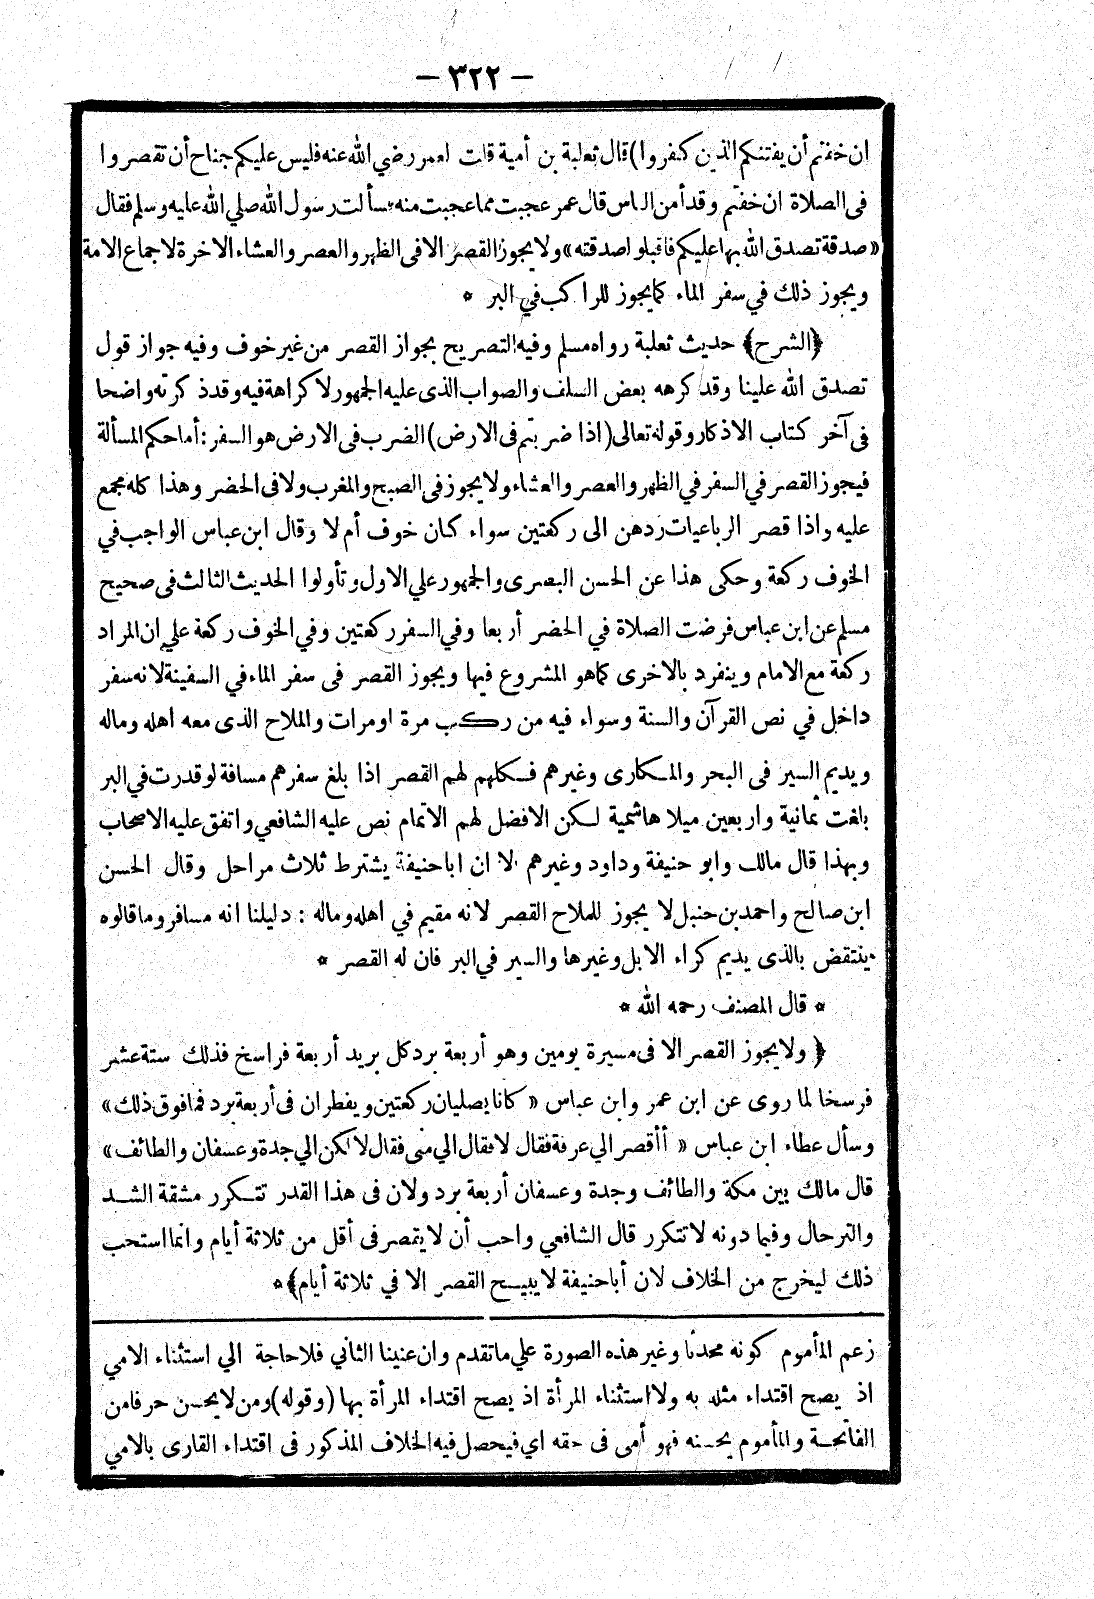 — ٣٢٢ —
ان خفتم أن يفتنكم الذين كفروا) قال ثعلبة بن أمية قلت لعمر رضي الله عنه فليس عليكم جناح أن تقصروا
فى الصلاة ان خفتم وقد أمن الناس قال عمر عجبت مما عجبت منه فسألت رسول الله صلي الله عليه وسلم فقال
« صدقة تصدق الله بها عليكم فاقبلوا صدقته» ولا يجوز القصر الا فى الظهر والعصر والعشاء الاخرة لاجماع الامة
ويجوز ذلك في سفر الماء كما يجوز للراكب في البر *
﴿الشرح﴾ حديث ثعلبة رواه مسلم وفيه التصريح بجواز القصر من غير خوف وفيه جواز قول
تصدق الله علينا وقد كرهه بعض السلف والصواب الذى عليه الجمهور لا كراهة فيه وقد ذكرته واضحا
فى آخر كتاب الاذكار وقوله تعالى (اذا ضربتم فى الارض) الضرب فى الارض هو السفر: أما حكم المسألة
فيجوز القصر في السفر في الظهر والعصر والعشاء ولا يجوز فى الصبح والمغرب ولا فى الحضر وهذا كله مجمع
عليه واذا قصر الرباعيات ردهن الى ركعتين سواء كان خوف أم لا وقال ابن عباس الواجب في
الخوف ركعة وحكى هذا عن الحسن البصرى والجمهور علي الاول وتأولوا الحديث الثالث فى صحيح
مسلم عن ابن عباس فرضت الصلاة في الحضر أربعا وفي السفر ركعتين وفي الخوف ركعة علي ان المراد
ركعة مع الامام وينفرد بالاخرى كما هو المشروع فيها ويجوز القصر فى سفر الماء في السفينة لانه سفر
داخل في نص القرآن والسنة وسواء فيه من ركب مرة او مرات والملاح الذى معه اهله وماله
ويديم السير فى البحر والمكارى وغيرهم فكلهم لهم القصر اذا بلغ سفرهم مسافة لو قدرت في البر
بلغت ثمانية واربعين ميلا هاشمية لكن الافضل لهم الاتمام نص عليه الشافعي واتفق عليه الاصحاب
وبهذا قال مالك وابو حنيفة وداود وغيرهم الا ان اباحنيفة يشترط ثلاث مراحل وقال الحسن
ابن صالح واحمد بن حنبل لا يجوز للملاح القصر لانه مقيم في اهله وماله : دليلنا انه مسافر وما قالوه
ينتقض بالذى يديم كراء الابل وغيرها والسير في البر فان له القصر *
* قال المصنف رحمه الله *
﴿ ولا يجوز القصر الا فى مسيرة يومين وهو أربعة برد كل بريد أربعة فراسخ فذلك ستة عشر
فرسخا لما روى عن ابن عمر وابن عباس « كانا يصليان ركعتين ويفطران فى أربعة برد فما فوق ذلك»
وسأل عطاء ابن عباس « أأقصر الي عرفة فقال لا فقال الي منى فقال لا لكن الي جدة وعسفان والطائف»
قال مالك بين مكة والطائف وجدة وعسفان أربعة برد ولان فى هذا القدر تتكرر مشقة الشد
والترحال وفيما دونه لا تتكرر قال الشافعي واحب أن لا يقصر فى أقل من ثلاثة أيام وانما استحب
ذلك ليخرج من الخلاف لان أباحنيفة لا يبيح القصر الا في ثلاثة أيام﴾ *
زعم المأموم كونه محدثا وغير هذه الصورة علي ما تقدم وان عنينا الثاني فلا حاجة الي استثناء الامي
اذ يصح اقتداء مثله به ولا استثناء المرأة اذ يصح اقتداء المرأة بها (وقوله) ومن لا يحسن حرفا من
الفاتحة والمأموم يحسنه فهو أمى فى حقه اي فيحصل فيه الخلاف المذكور فى اقتداء القارى بالامي